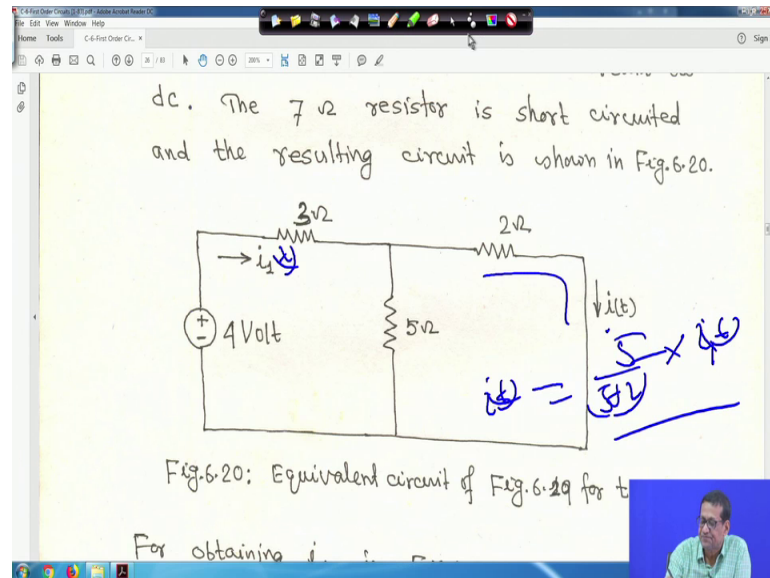 C-6-First Order Circuits [1-83].pdf - Adobe Acrobat Reader DC
File Edit View Window Help
Home Tools C-6-First Order Cir... × Sign
26 / 83 200%
dc. The 7 Ω resistor is short circuited
and the resulting circuit is shown in Fig.6.20.
3Ω
2Ω
i₁(t)
i(t)
4 Volt
5Ω
i(t) = 5/(5+2) × i₁(t)
Fig.6.20: Equivalent circuit of Fig.6.19 for t
For obtaining